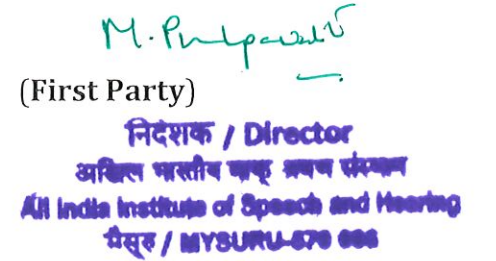 M. Pushpavathi
(First Party)
निदेशक / Director
अखिल भारतीय वाक् श्रवण संस्थान
All India Institute of Speech and Hearing
मैसूरु / MYSURU-570 006